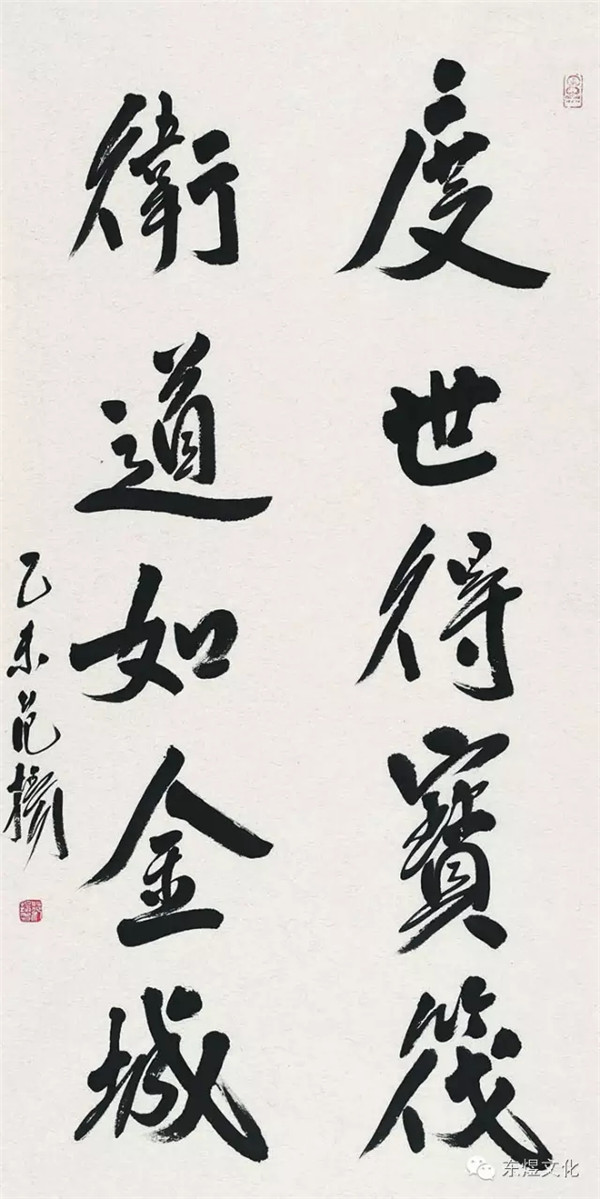 度世得寶筏
衛道如金城
乙未范揚
东煜文化